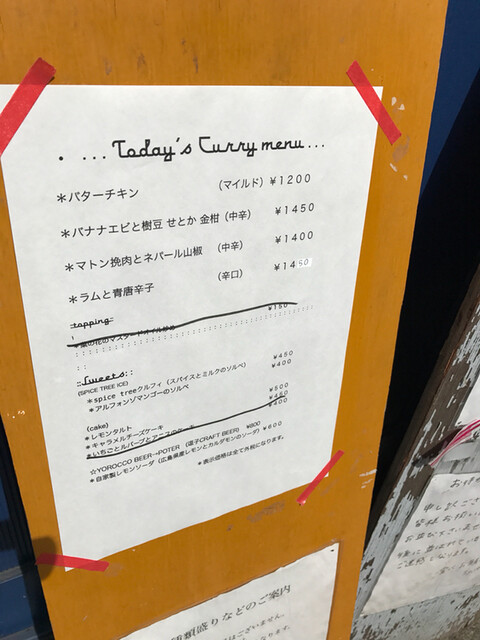 . ... Today's Curry menu...
＊バターチキン （マイルド）￥1200
＊バナナエビと樹豆 せとか 金柑（中辛） ￥1450
＊マトン挽肉とネパール山椒 （中辛） ￥1400
＊ラムと青唐辛子 （辛口） ￥1450
topping ￥150
＊菜の花のマスタードオイル炒め
::Sweets::
(SPICE TREE ICE)
＊spice treeクルフィ（スパイスとミルクのソルベ） ￥450
＊アルフォンソマンゴーのソルベ ￥400
(cake)
＊レモンタルト ￥500
＊キャラメルチーズケーキ ￥450
＊いちごとルバーブと ￥400
☆YOROCCO BEER→POTER（逗子CRAFT BEER） ￥800
＊自家製レモンソーダ（広島県産レモンとカルダモンのソーダ）￥600
＊表示価格は全て外税になります。
種類盛りなどのご案内
はございません。
なります。